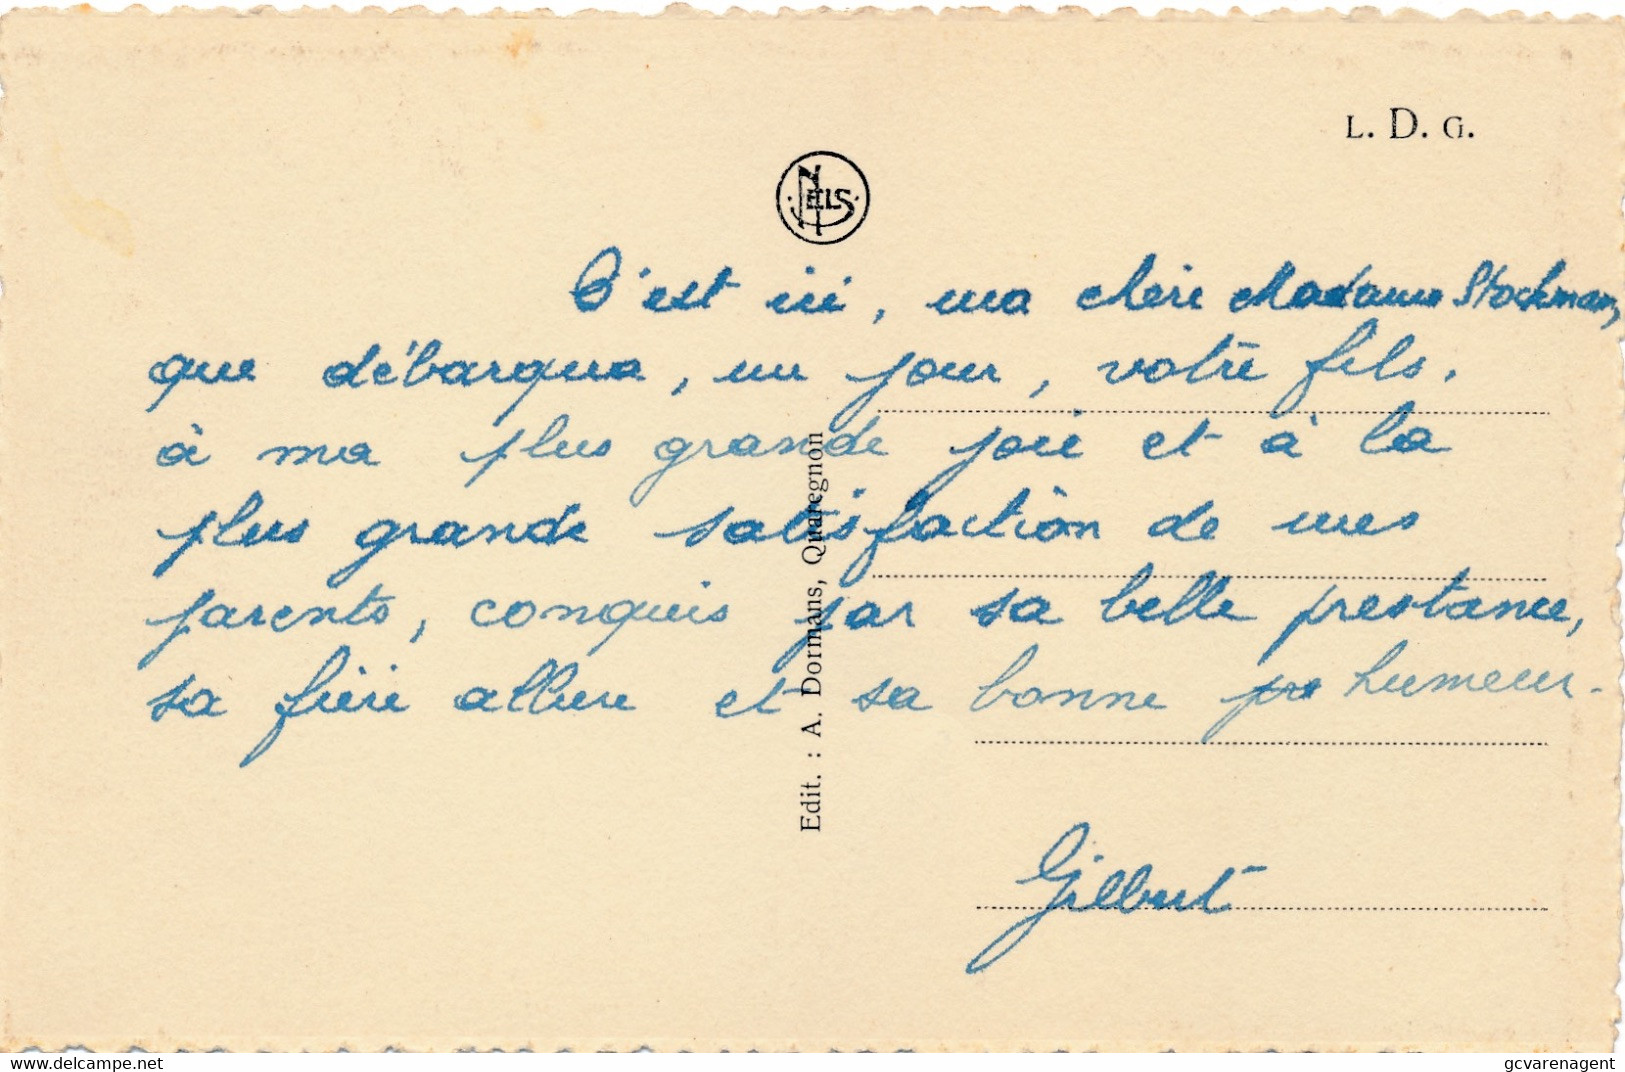 L. D. G.
NELS
C'est ici, ma chère Madame Stockman,
que débarqua, un jour, votre fils.
à ma plus grande joie et à la
plus grande satisfaction de mes
parents, conquis par sa belle prestance,
sa fière allure et sa bonne humeur.
Gilbert
Edit. : A. Dormans, Quaregnon
https://www.delcampe.net
gcvarenagent